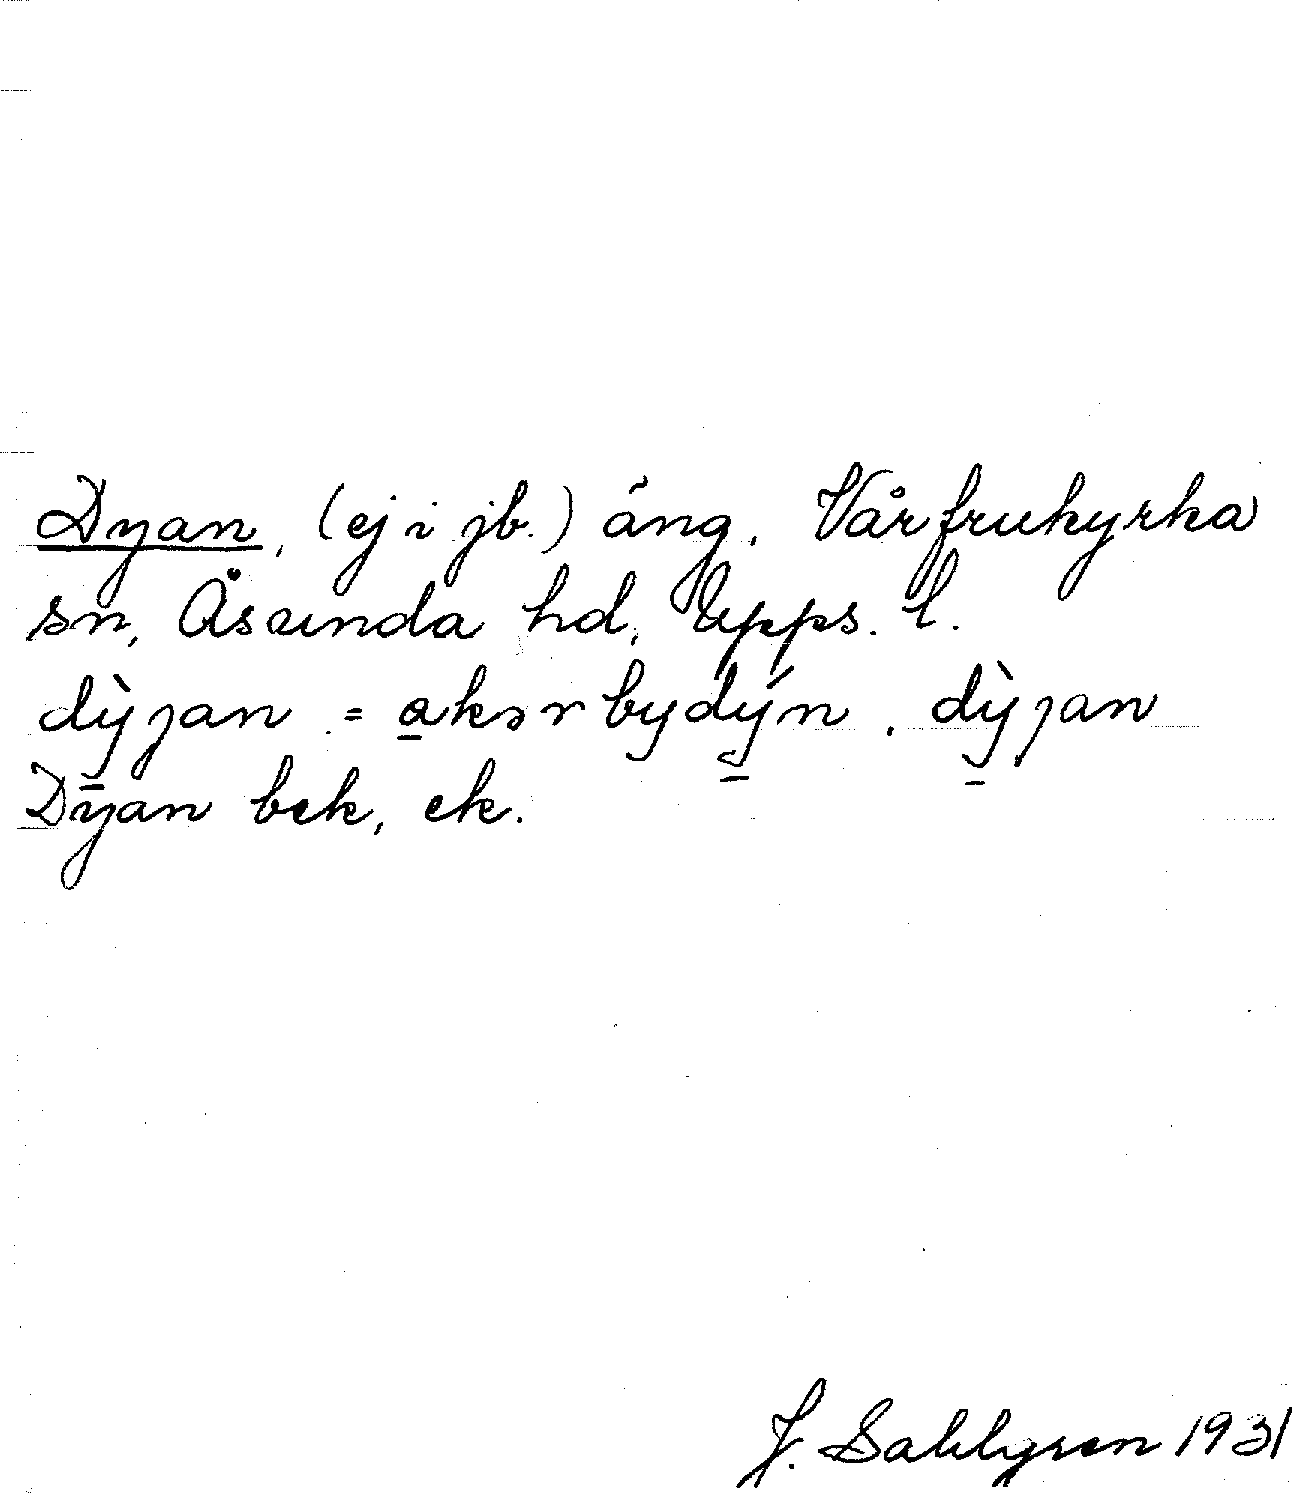 Dyan, (ej i jb.) äng, Vårfrukyrka
sn, Åsunda hd, Upps. l.
dỳjan = a̲kərbydý̲n, dỳ̲jan
Dȳan bek, ek.
J. Sahlgren 1931